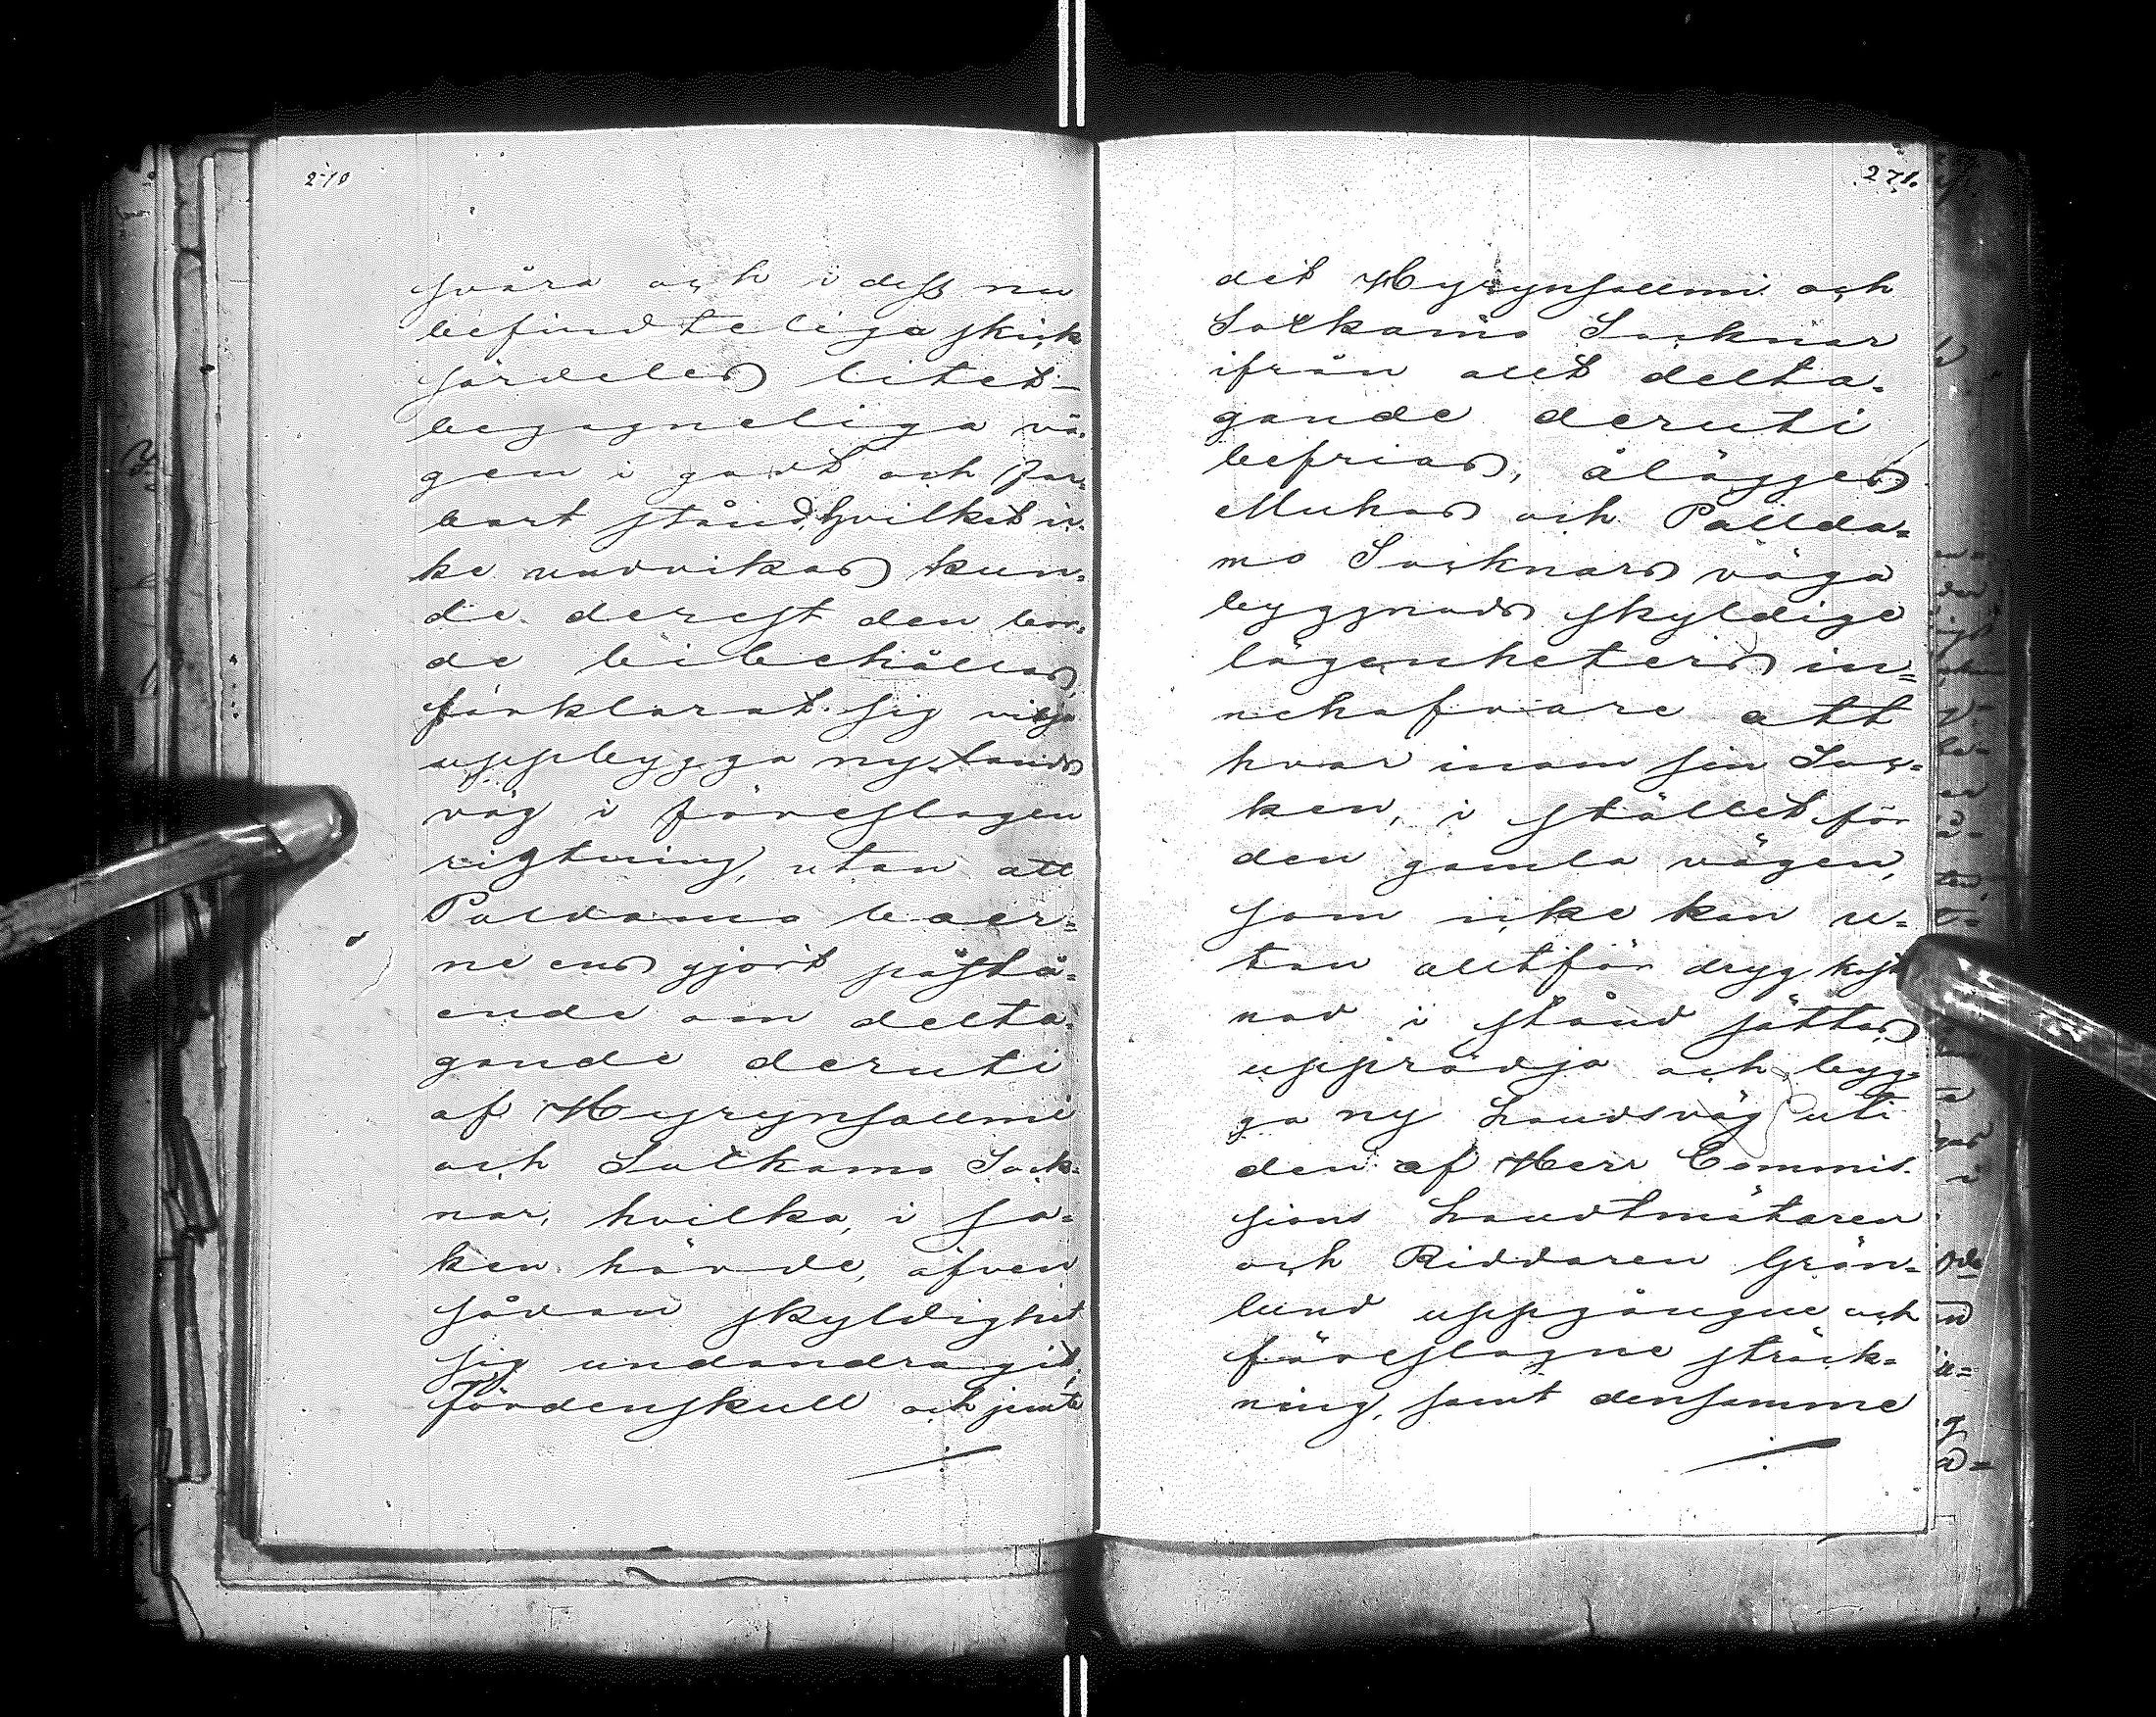 270
svåra och i dess nu
befindteliga skick
särdeles litet
begagneliga vä-
gen i godt och far-
bart stånd, hvilket ic-
ke undvikas kun-
de derest den bor-
de bibehållas,
förklarat sig vilja
uppbygga ny Lands
väg i föreslagen
rigtning, utan att
Paldamo boer-
ne ens gjort påstå-
ende om delta-
gande deruti
af Hyrynsallmi
och Sotkamo Sock-
nar, hvilka, i sa-
ken hörde, äfven
sådan skyldighet
sig undandragit;
fördenskull och jemte
271.
det Hyrynsallmi och
Sotkamo Socknar
ifrån allt delta-
gande deruti
befrias, ålägges
Muhos och Pallda-
mo Socknars väga
byggnads skyldige
lägenheters in-
nehafvare att
hvar inom sin Soc-
ken, i stället för
den gamla vägen,
som icke kan u-
tan alltför dryg kost
nad i stånd sättas
upprödja och byg-
ga ny Landsväg uti
den af Herr Commis-
sions Landtmätaren
och Riddaren Grön-
lund uppgångne och
föreslagne sträck-
ning, samt densamme